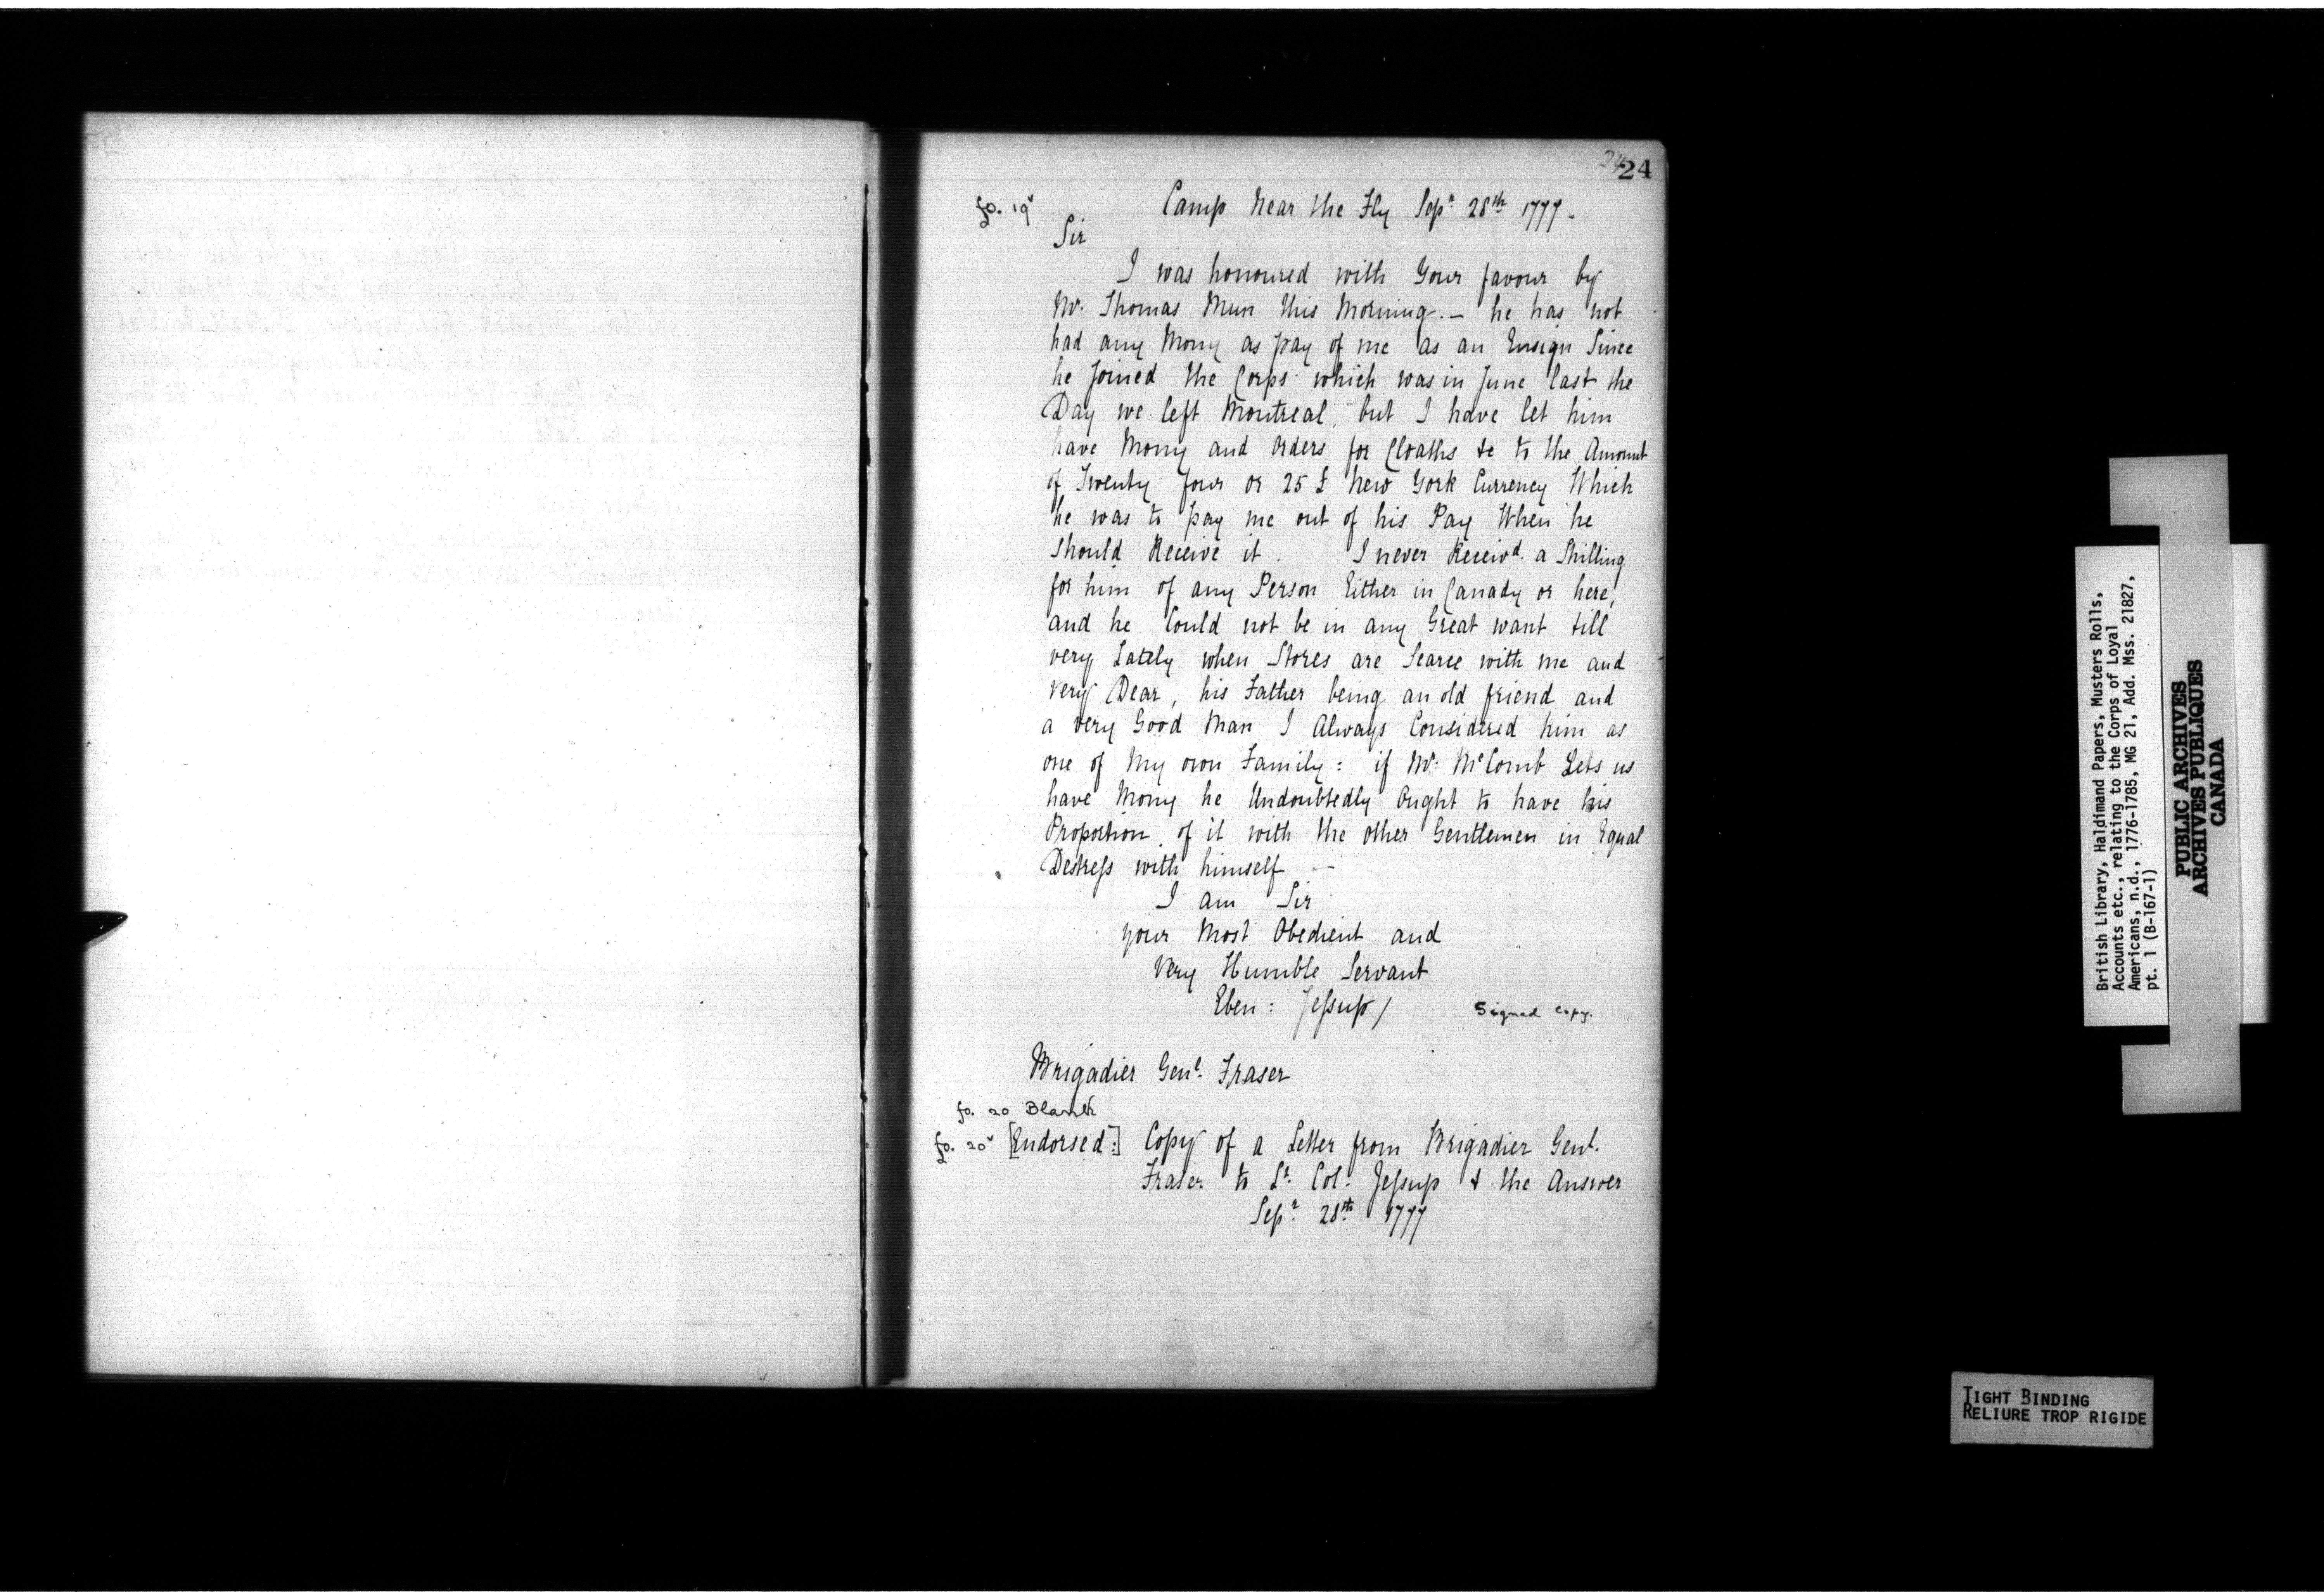 24 24
fo. 19v
Camp Near the Fly Sepr. 28th 1777.
Sir
I was honoured with Your favour by
Mr. Thomas Mun this Morning. — he has not
had any Mony as pay of me as an Ensign Since
he Joined the Corps which was in June last the
Day we left Montreal, but I have let him
have Mony and Orders for Cloaths &c to the Amount
of Twenty four or 25 £ New York Currency Which
he was to pay me out of his Pay When he
Should Receive it. I never Receivd. a Shilling
for him of any Person Either in Canady or here,
and he Could not be in any Great want till
very Lately when Stores are Scarce with me and
very Dear, his Father being an old friend and
a very Good Man I Always Considered him as
one of My own Family: if Mr. McComb Lets us
have Mony he Undoubtedly Ought to have his
Proportion of it with the other Gentlemen in Equal
Destress with himself —
I am Sir
your Most Obedient and
Very Humble Servant
Eben: Jessup /
Signed copy.
Brigadier Genl. Fraser
fo. 20 Blank
fo. 20v [Endorsed:] Copy of a Letter from Brigadier Genl.
Fraser to Lt. Col. Jessup & the Answer
Sepr. 28th. 1777
British Library, Haldimand Papers, Musters Rolls,
Accounts etc., relating to the Corps of Loyal
Americans, n.d., 1776-1785, MG 21, Add. Mss. 21827,
pt. 1 (B-167-1)
PUBLIC ARCHIVES
ARCHIVES PUBLIQUES
CANADA
TIGHT BINDING
RELIURE TROP RIGIDE